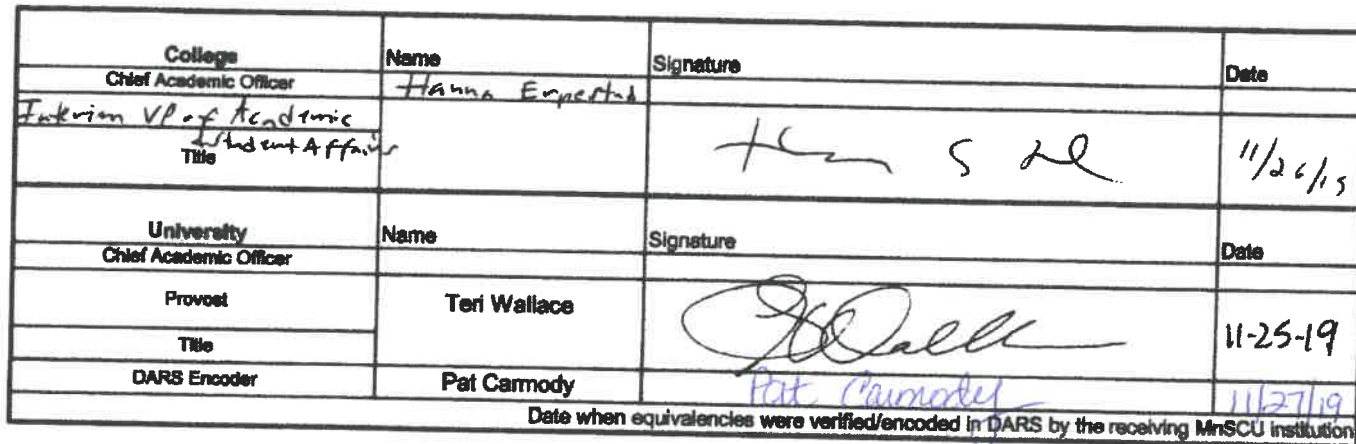 College Name Signature Date
Chief Academic Officer Hanna Erpestad
Interim VP of Academic
Student Affairs
Title 11/26/19
University Name Signature Date
Chief Academic Officer
Provost Teri Wallace 11-25-19
Title
DARS Encoder Pat Carmody Pat Carmody 11/27/19
Date when equivalencies were verified/encoded in DARS by the receiving MnSCU institution